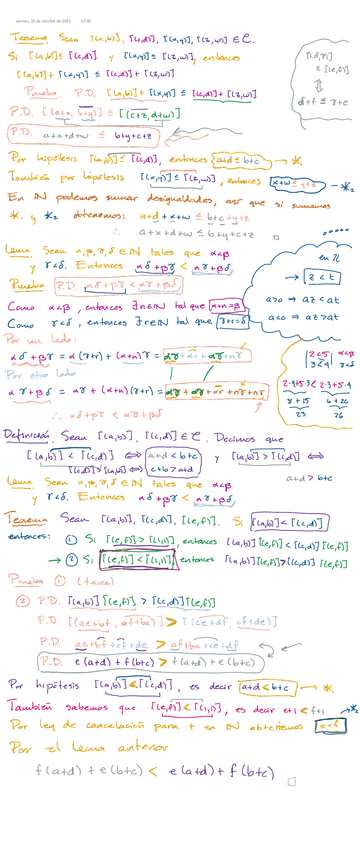 viernes, 15 de octubre de 2021 17:08
Teorema Sean [(a,b)], [(c,d)], [(x,y)], [(z,w)] ∈ ℤ.
Si [(a,b)] ≤ [(c,d)] y [(x,y)] ≤ [(z,w)], entonces
[(a,b)] + [(x,y)] ≤ [(c,d)] + [(z,w)]
Prueba P.D. [(a,b)] + [(x,y)] ≤ [(c,d)] + [(z,w)]
P.D. [(a+x, b+y)] ≤ [(c+z, d+w)]
P.D. a+x+d+w ≤ b+y+c+z
Por hipótesis [(a,b)] ≤ [(c,d)], entonces a+d ≤ b+c → *₁
También por hipótesis [(x,y)] ≤ [(z,w)], entonces x+w ≤ y+z → *₂
En ℕ podemos sumar desigualdades, así que si sumamos
*₁ y *₂ obtenemos: a+d+x+w ≤ b+c+y+z
∴ a+x+d+w ≤ b+y+c+z
≤ [(e,f)]
⇕
d+f ≤ γ+e
Lema Sean α, β, γ, δ ∈ ℕ tales que α<β
y γ<δ. Entonces αδ+βγ < αγ+βδ
Prueba P.D. αδ+βγ < αγ+βδ
Como α<β, entonces ∃n∈ℕ tal que α+n=β
Como γ<δ, entonces ∃r∈ℕ tal que γ+r=δ
Por un lado:
αδ+βγ = α(γ+r) + (α+n)γ = αγ+αr+αγ+nγ
Por otro lado
αγ+βδ = αγ + (α+n)(γ+r) = αγ+αγ+αr+nγ+nr
∴ αδ+βγ < αγ+βδ
en ℤ
→ z < t
a>0 ⇒ az<at
a<0 ⇒ az>at
2<5 α<β
3<4 γ<δ
2·4+5·3 < 2·3+5·4
8+15 6+20
23 26
Definición. Sean [(a,b)], [(c,d)] ∈ ℤ. Decimos que
[(a,b)] < [(c,d)] ⇔ a+d < b+c y [(a,b)] > [(c,d)] ⇔
[(c,d)] > [(a,b)] ⇔ c+b > a+d
a+d > b+c
Lema Sean α, β, γ, δ ∈ ℕ tales que α<β
y γ<δ. Entonces αδ+βγ < αγ+βδ
Teorema Sean [(a,b)], [(c,d)], [(e,f)]. Si [(a,b)] < [(c,d)]
entonces: ① Si [(e,f)] > [(1,1)], entonces [(a,b)][(e,f)] < [(c,d)][(e,f)]
→ ② Si [(e,f)] < [(1,1)], entonces [(a,b)][(e,f)] > [(c,d)][(e,f)]
Prueba ① (tarea)
② P.D. [(a,b)][(e,f)] > [(c,d)][(e,f)]
P.D. [(ae+bf, af+be)] > [(ce+df, cf+de)]
P.D. ae+bf+cf+de > af+be+ce+df
P.D. e(a+d) + f(b+c) > f(a+d) + e(b+c)
Por hipótesis [(a,b)] < [(c,d)], es decir a+d < b+c → *₁
También sabemos que [(e,f)] < [(1,1)], es decir e+1 < f+1 → *₂
Por ley de cancelación para + en ℕ obtenemos e<f
Por el Lema anterior
f(a+d) + e(b+c) < e(a+d) + f(b+c)